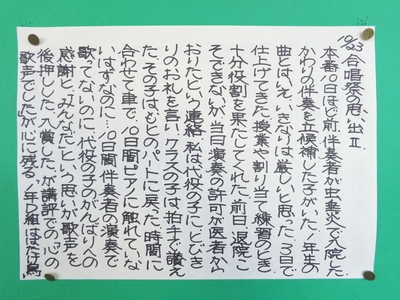 10/23 合唱祭の思い出Ⅱ.
本番10日ほど前、伴奏者が虫垂炎で入院した.
かわりの伴奏を立候補した子がいた。1年生の
曲とはいえ、いきなりは厳しいと思った。3日で
仕上げてきた。授業や割り当て練習のとき
十分役割を果たしてくれた。前日、退院こ
そできないが、当日演奏の許可が医者から
おりたという連絡。私は代役の子にとびき
りのお礼を言い、クラスの子は拍手で讃え
た。その子はもとのパートに戻った。時間に
合わせて車で、10日間ピアノに触れていな
いはずなのに…。10日間伴奏者の演奏で
歌ってないのに…。代役の子のがんばりへの
感謝と、みんなだという思いが歌声を
後押した。入賞したが講評での「心の
歌声でした」が心に残る。1年D組ははばたけ鳥